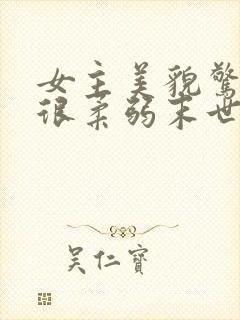 女主美貌驚
很柔弱末世
吴仁寶